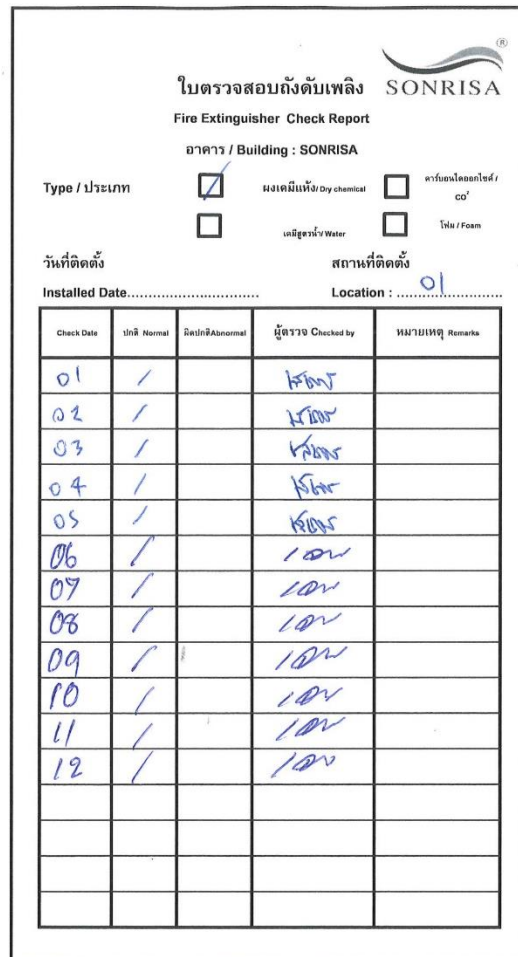 ®
SONRISA
ใบตรวจสอบถังดับเพลิง
Fire Extinguisher Check Report
อาคาร / Building : SONRISA
Type / ประเภท / ผงเคมีแห้ง/ Dry chemical คาร์บอนไดออกไซด์ / CO²
เคมีสูตรน้ำ/ Water โฟม / Foam
วันที่ติดตั้ง สถานที่ติดตั้ง
Installed Date.............................. Location : 01
Check Date ปกติ Normal ผิดปกติAbnormal ผู้ตรวจ Checked by หมายเหตุ Remarks
01 /
02 /
03 /
04 /
05 /
06 /
07 /
08 /
09 /
10 /
11 /
12 /